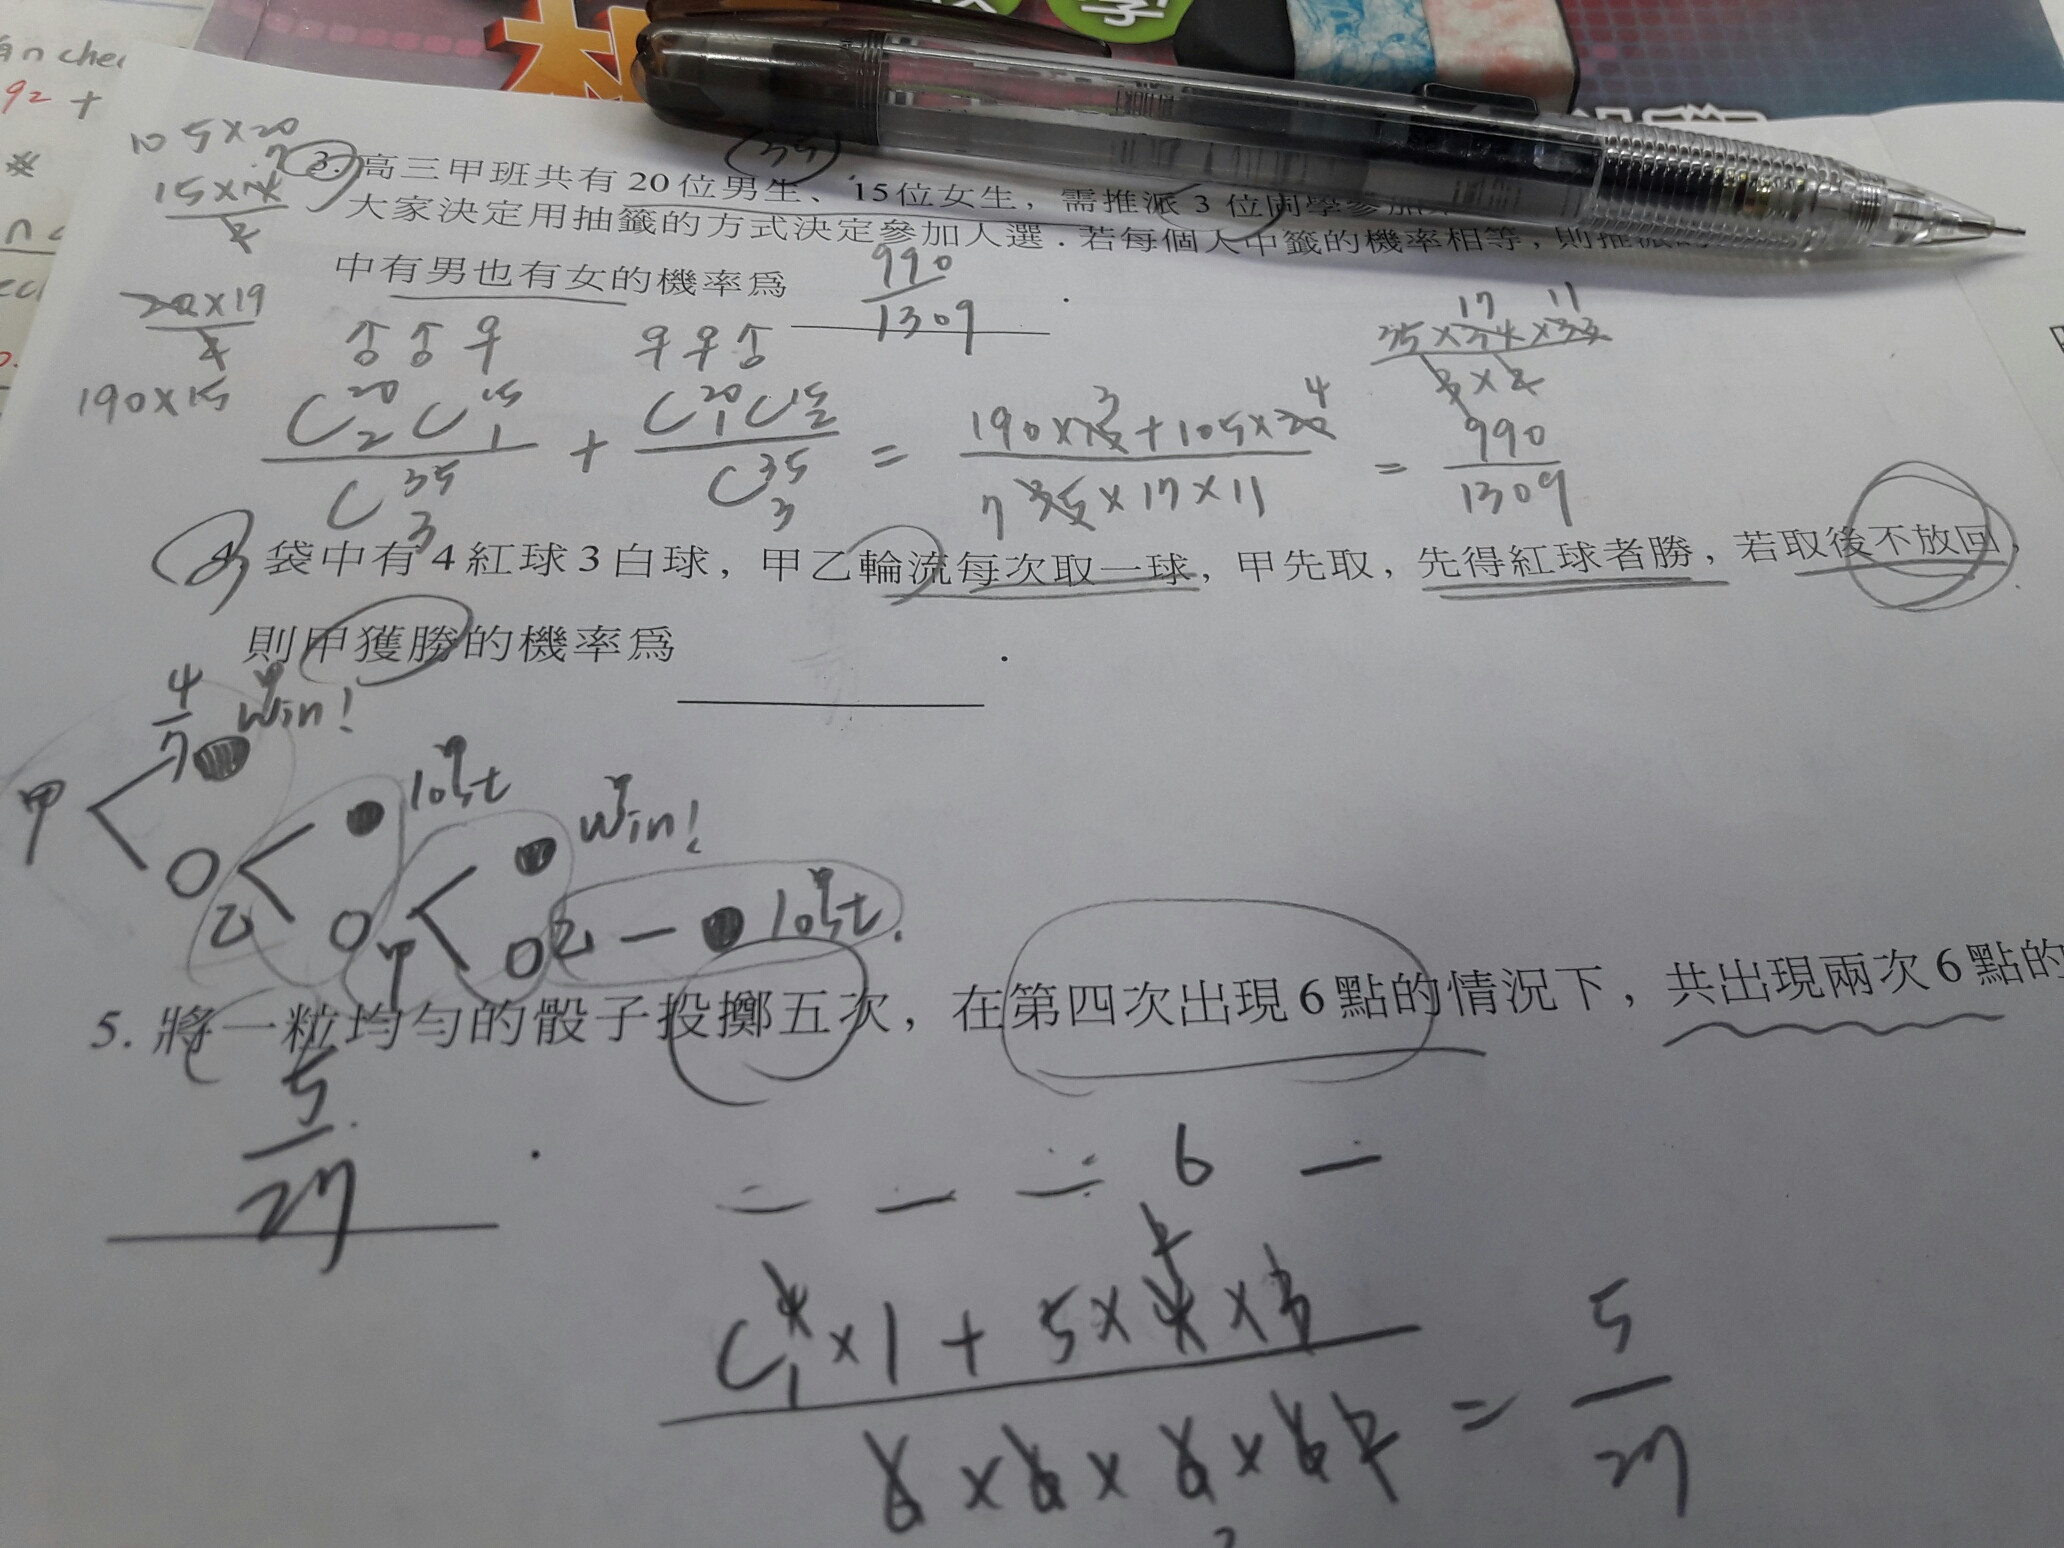 學!
án che
92 +
105×20
15×14
2
20×19
2
190×15
35
3. 高三甲班共有 20 位男生、15位女生，需推派 3 位同學參加
大家決定用抽籤的方式決定參加人選．若每個人中籤的機率相等，則推派的
中有男也有女的機率為 990/1309 ．
♂♂♀ ♀♀♂
C²⁰₂C¹⁵₁/C³⁵₃ + C²⁰₁C¹⁵₂/C³⁵₃ = 190×15 3+105×20 4/7 35×17×11 = 990/1309
17 11
35×34×33
3×2
4. 袋中有 4 紅球 3 白球，甲乙輪流每次取一球，甲先取，先得紅球者勝，若取後不放回，
則甲獲勝的機率為 ．
4/7 win!
甲 lost
乙 win!
甲 乙 lost.
5. 將一粒均勻的骰子投擲五次，在第四次出現 6 點的情況下，共出現兩次 6 點的
5/27 ．
6
C⁴₁×1+5×4×3
6×6×6×6 = 5/27